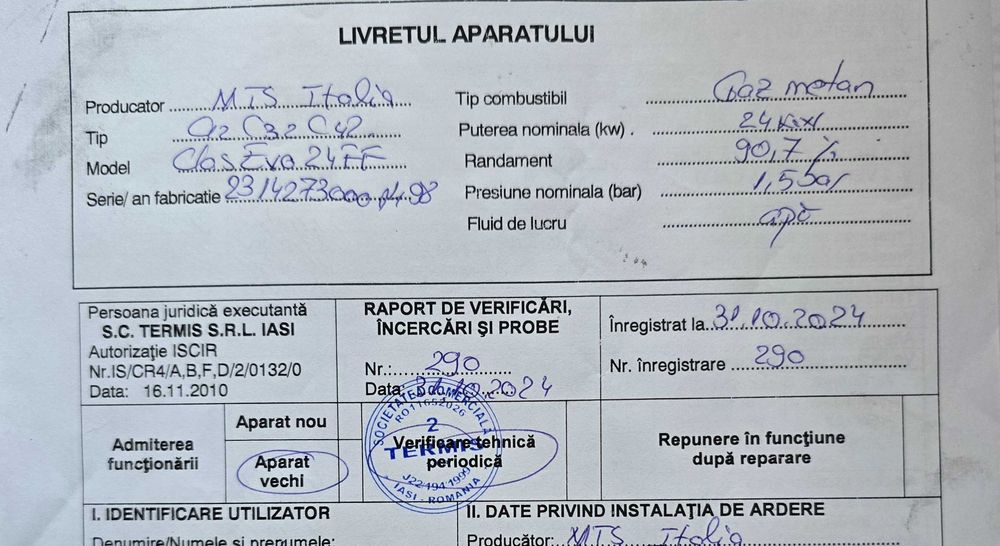 LIVRETUL APARATULUI
Producator MTS Italia
Tip C12 C32 C42
Model Clas Evo 24 FF
Serie/ an fabricatie
Tip combustibil Gaz metan
Puterea nominala (kw) . 24 kw
Randament 90,7 %
Presiune nominala (bar) 1,5 bar
Fluid de lucru apă
Persoana juridică executantă
S.C. TERMIS S.R.L. IASI
Autorizaţie ISCIR
Nr.IS/CR4/A,B,F,D/2/0132/0
Data: 16.11.2010
RAPORT DE VERIFICĂRI,
ÎNCERCĂRI ŞI PROBE
Nr.: 290
Data: 31.10.2024
Înregistrat la 31.10.2024
Nr. înregistrare 290
Admiterea
funcţionării
Aparat nou
Aparat
vechi
Verificare tehnică
periodică
SOCIETATEA COMERCIALĂ
RO11652026
2
TERMIS
J22 194 1999
IASI - ROMANIA
Repunere în funcţiune
după reparare
I. IDENTIFICARE UTILIZATOR
Denumire/Numele şi prenumele:
II. DATE PRIVIND INSTALAŢIA DE ARDERE
Producător: MTS Italia